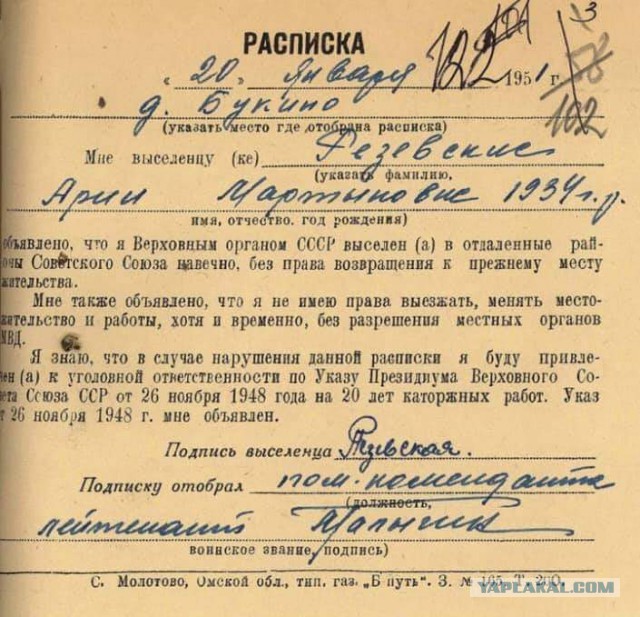 3
122
РАСПИСКА
102
„ 20 " января 1951 г.
д. Букино
(указать место где отобрана расписка)
Мне выселенцу (ке) Резевские
(указать фамилию,
Арии Мартыновие 1934 г. р.
имя, отчество. год рождения)
объявлено, что я Верховным органом СССР выселен (а) в отдаленные рай-
оны Советского Союза навечно, без права возвращения к прежнему месту
жительства.
Мне также объявлено, что я не имею права выезжать, менять место-
жительство и работы, хотя и временно, без разрешения местных органов
МВД.
Я знаю, что в случае нарушения данной расписки я буду привле-
чен (а) к уголовной ответственности по Указу Президиума Верховного Со-
вета Союза ССР от 26 ноября 1948 года на 20 лет каторжных работ. Указ
от 26 ноября 1948 г. мне объявлен.
Подпись выселенца
Подписку отобрал пом. коменданта
(должность,
лейтенант Малыгин
воинское звание, подпись)
С. Молотово, Омской обл., тип. газ. „Б путь". З. № 165. Т. 200.
YAPLAKAL.COM